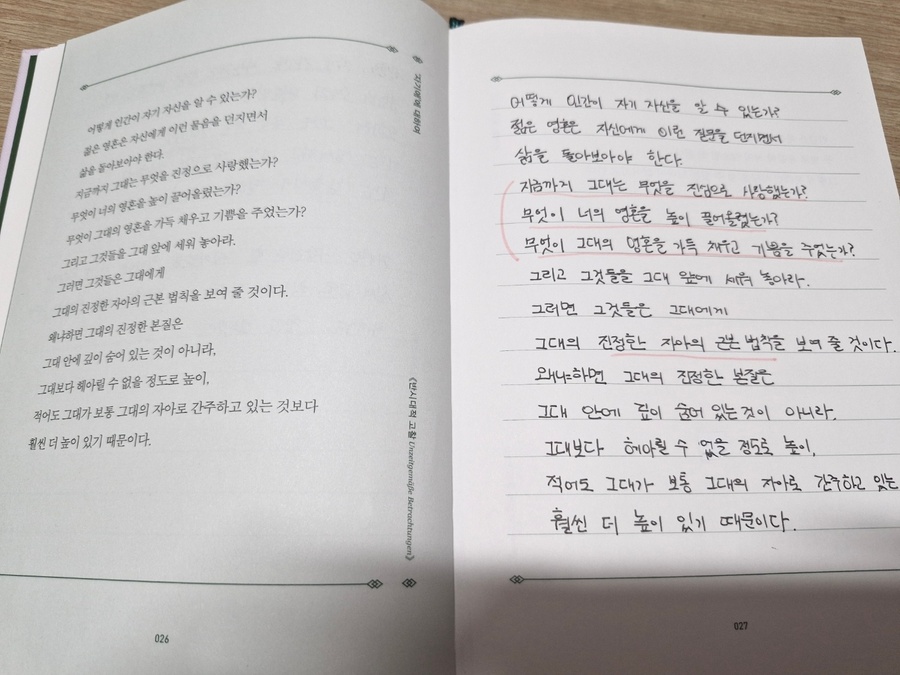 어떻게 인간이 자기 자신을 알 수 있는가?
젊은 영혼은 자신에게 이런 물음을 던지면서
삶을 돌아보아야 한다.
지금까지 그대는 무엇을 진정으로 사랑했는가?
무엇이 너의 영혼을 높이 끌어올렸는가?
무엇이 그대의 영혼을 가득 채우고 기쁨을 주었는가?
그리고 그것들을 그대 앞에 세워 놓아라.
그러면 그것들은 그대에게
그대의 진정한 자아의 근본 법칙을 보여 줄 것이다.
왜냐하면 그대의 진정한 본질은
그대 안에 깊이 숨어 있는 것이 아니라,
그대보다 헤아릴 수 없을 정도로 높이,
적어도 그대가 보통 그대의 자아로 간주하고 있는 것보다
훨씬 더 높이 있기 때문이다.
자기애에 대하여
《반시대적 고찰 Unzeitgemäße Betrachtungen》
026
어떻게 인간이 자기 자신을 알 수 있는가?
젊은 영혼은 자신에게 이런 질문을 던지면서
삶을 돌아보아야 한다.
지금까지 그대는 무엇을 진심으로 사랑했는가?
무엇이 너의 영혼을 높이 끌어올렸는가?
무엇이 그대의 영혼을 가득 채우고 기쁨을 주었는가?
그리고 그것들을 그대 앞에 세워 놓아라.
그러면 그것들은 그대에게
그대의 진정한 자아의 근본 법칙을 보여 줄 것이다.
왜냐하면 그대의 진정한 본질은
그대 안에 깊이 숨어 있는 것이 아니라.
그대보다 헤아릴 수 없을 정도로 높이,
적어도 그대가 보통 그대의 자아로 간주하고 있는
훨씬 더 높이 있기 때문이다.
027